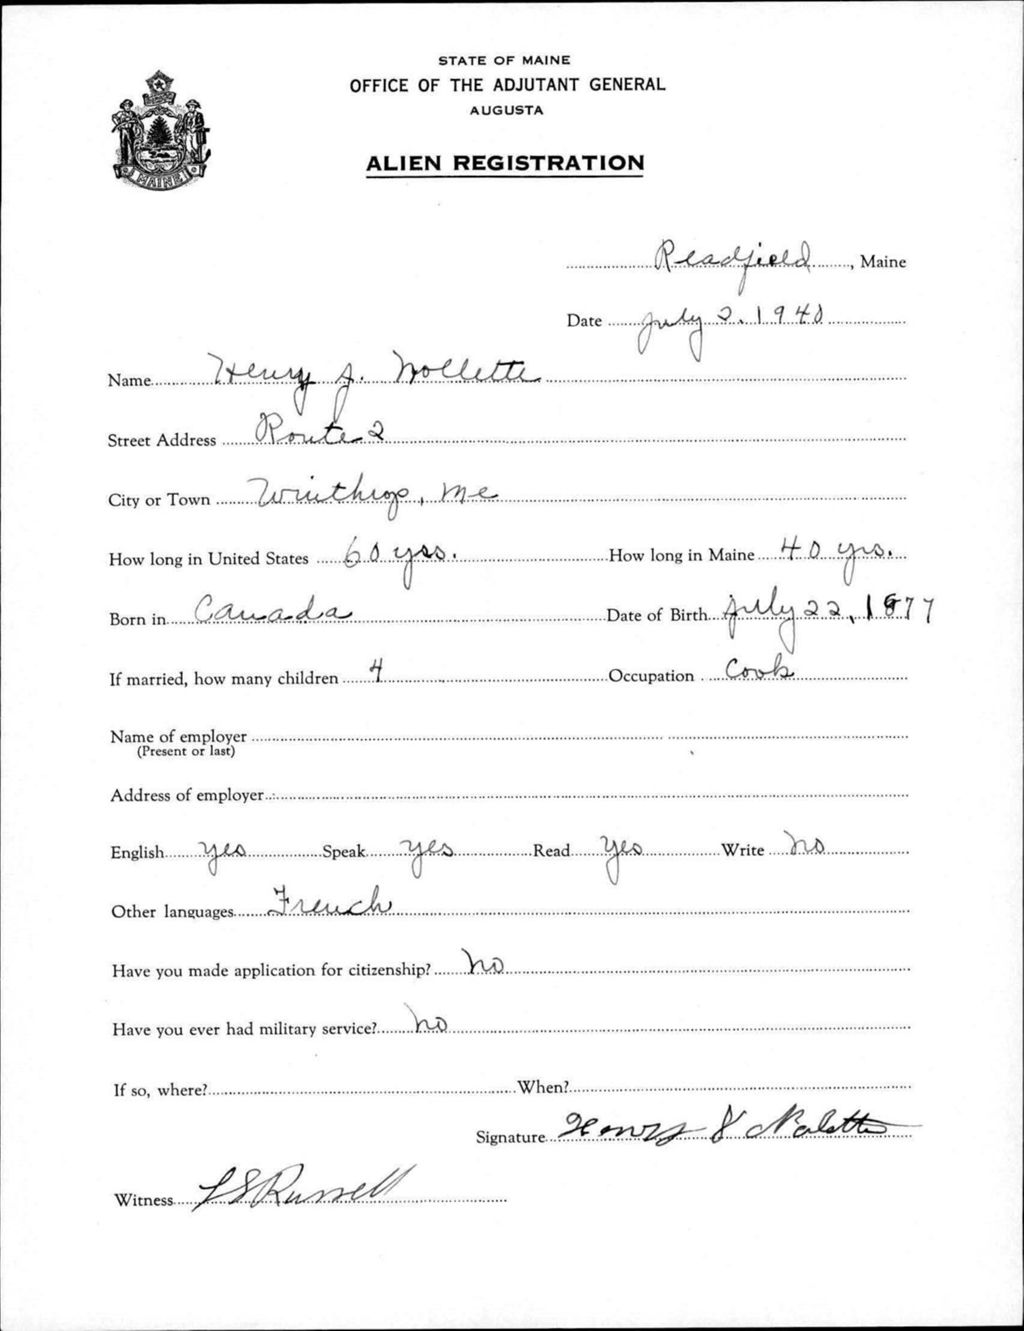 STATE OF MAINE
OFFICE OF THE ADJUTANT GENERAL
AUGUSTA
MAINE
ALIEN REGISTRATION
Readfield, Maine
Date July 2. 1940
Name Henry J. Nollette
Street Address Route 2
City or Town Winthrop, Me
How long in United States 60 yrs. How long in Maine 40 yrs.
Born in Canada Date of Birth July 22, 1877
If married, how many children 4 Occupation Cook
Name of employer
(Present or last)
Address of employer
English yes Speak yes Read yes Write no
Other languages French
Have you made application for citizenship? no
Have you ever had military service? no
If so, where? When?
Signature Henry J Nolette
Witness L S Russell